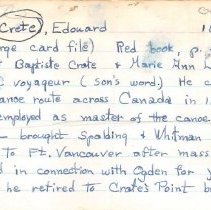 Crete, Edouard
rge card file) Red book, p.
Baptiste Crate & Marie Ann
voyageur (son's word.) He c
anoe route across Canada in 1
mployed as master of the canoe
— brought Spalding & Whitman
To Ft. Vancouver after mass
d in connection with Ogden for y
he retired to Crate's Point b